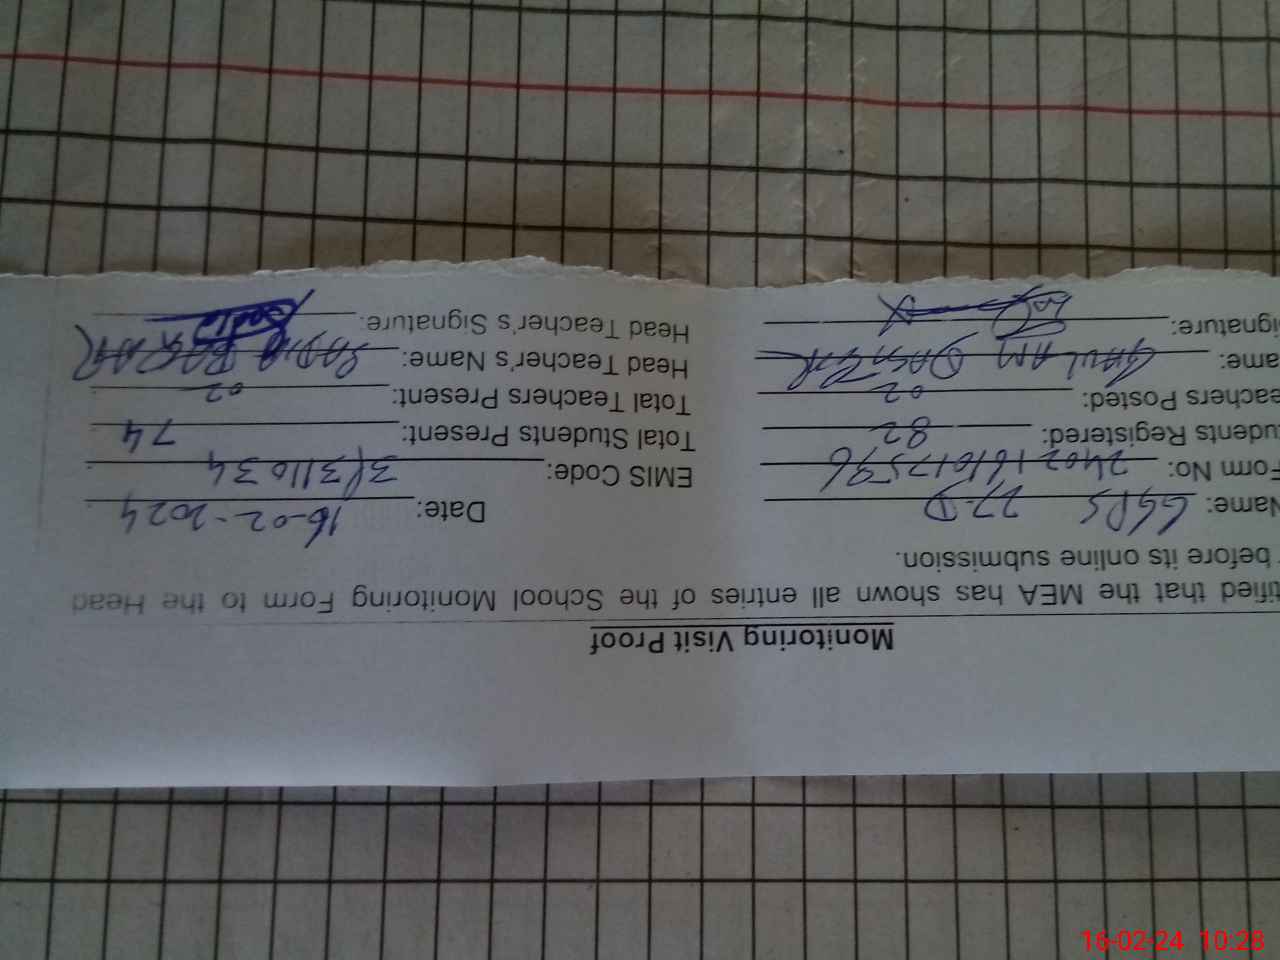 Monitoring Visit Proof
tified that the MEA has shown all entries of the School Monitoring Form to the Head
before its online submission.
Name: GGPS 22-D Date: 16-02-2024
Form No: 2402161017596 EMIS Code: 31311034
udents Registered: 82 Total Students Present: 74
eachers Posted: 02 Total Teachers Present: 02
ame: GHULAM Head Teacher's Name: SADIA
ignature: Head Teacher's Signature: Sadia
16-02-24 10:28